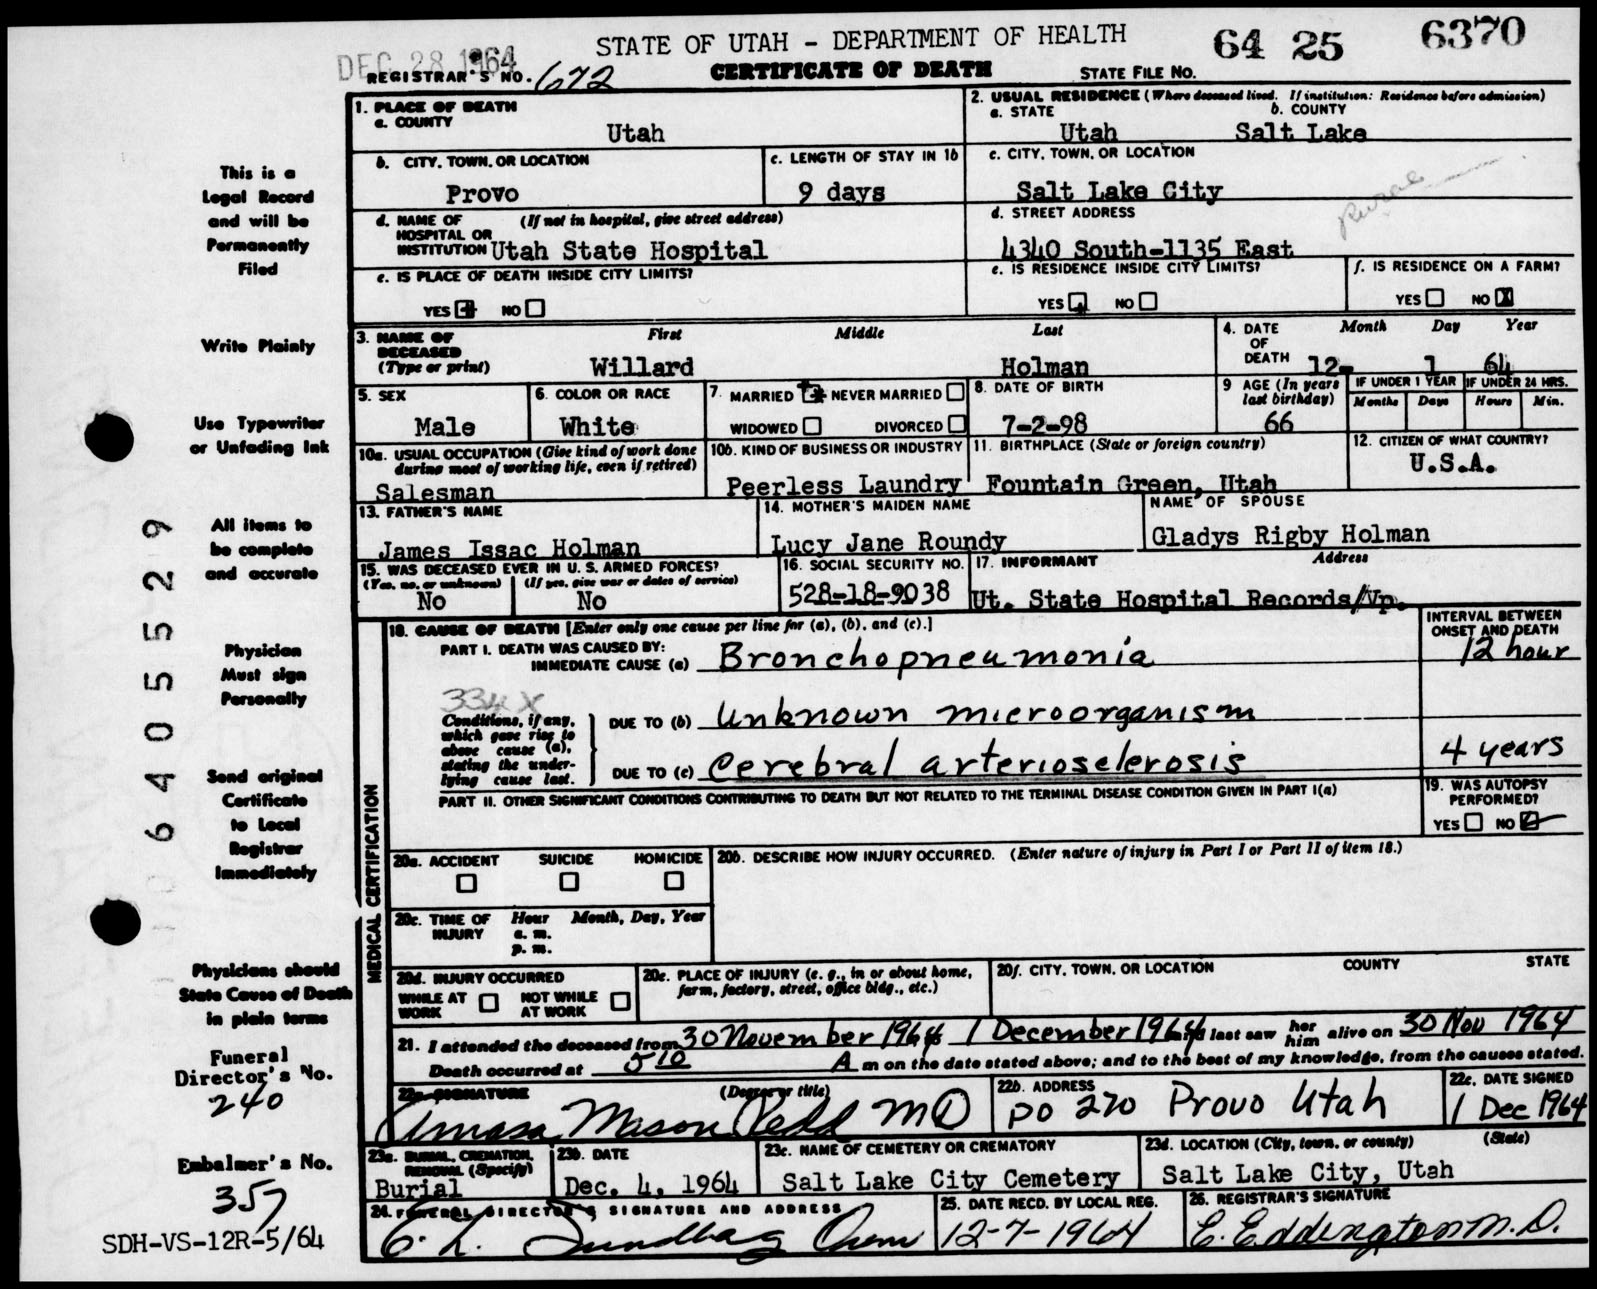 DEC 28 1964
STATE OF UTAH - DEPARTMENT OF HEALTH
64 25 6370
REGISTRAR'S NO. 672
CERTIFICATE OF DEATH
STATE FILE NO.
This is a
Legal Record
and will be
Permanently
Filed
Write Plainly
Use Typewriter
or Unfading Ink
All items to
be complete
and accurate
Physician
Must sign
Personally
Send original
Certificate
to Local
Registrar
Immediately
Physicians should
State Cause of Death
in plain terms
Funeral
Director's No.
240
Embalmer's No.
357
SDH-VS-12R-5/64
64055529
1. PLACE OF DEATH
a. COUNTY
Utah
2. USUAL RESIDENCE (Where deceased lived. If institution: Residence before admission)
a. STATE b. COUNTY
Utah Salt Lake
b. CITY, TOWN, OR LOCATION
Provo
c. LENGTH OF STAY IN 1b
9 days
c. CITY, TOWN, OR LOCATION
Salt Lake City
Rural
d. NAME OF (If not in hospital, give street address)
HOSPITAL OR
INSTITUTION Utah State Hospital
d. STREET ADDRESS
4340 South-1135 East
e. IS PLACE OF DEATH INSIDE CITY LIMITS?
YES NO
e. IS RESIDENCE INSIDE CITY LIMITS?
YES NO
f. IS RESIDENCE ON A FARM?
YES NO X
3. NAME OF First Middle Last
DECEASED
(Type or print) Willard Holman
4. DATE Month Day Year
OF
DEATH 12- 1 64
5. SEX
Male
6. COLOR OR RACE
White
7. MARRIED NEVER MARRIED
WIDOWED DIVORCED
8. DATE OF BIRTH
7-2-98
9 AGE (In years
last birthday)
66
IF UNDER 1 YEAR IF UNDER 24 HRS.
Months Days Hours Min.
10a. USUAL OCCUPATION (Give kind of work done
during most of working life, even if retired)
Salesman
10b. KIND OF BUSINESS OR INDUSTRY
Peerless Laundry
11. BIRTHPLACE (State or foreign country)
Fountain Green, Utah
12. CITIZEN OF WHAT COUNTRY?
U.S.A.
13. FATHER'S NAME
James Issac Holman
14. MOTHER'S MAIDEN NAME
Lucy Jane Roundy
NAME OF SPOUSE
Gladys Rigby Holman
15. WAS DECEASED EVER IN U. S. ARMED FORCES?
(Yes, no, or unknown) (If yes, give war or dates of service)
No No
16. SOCIAL SECURITY NO.
528-18-9038
17. INFORMANT Address
Ut. State Hospital Records/Vp.
MEDICAL CERTIFICATION
18. CAUSE OF DEATH [Enter only one cause per line for (a), (b), and (c).]
INTERVAL BETWEEN
ONSET AND DEATH
PART I. DEATH WAS CAUSED BY:
IMMEDIATE CAUSE (a) Bronchopneumonia 12 hour
334X
Conditions, if any,
which gave rise to
above cause (a),
stating the under-
lying cause last.
DUE TO (b) Unknown microorganism
DUE TO (c) Cerebral arteriosclerosis 4 years
PART II. OTHER SIGNIFICANT CONDITIONS CONTRIBUTING TO DEATH BUT NOT RELATED TO THE TERMINAL DISEASE CONDITION GIVEN IN PART I(a)
19. WAS AUTOPSY
PERFORMED?
YES NO
20a. ACCIDENT SUICIDE HOMICIDE
20b. DESCRIBE HOW INJURY OCCURRED. (Enter nature of injury in Part I or Part II of item 18.)
20c. TIME OF Hour Month, Day, Year
INJURY a. m.
p. m.
20d. INJURY OCCURRED
WHILE AT NOT WHILE
WORK AT WORK
20e. PLACE OF INJURY (e. g., in or about home,
farm, factory, street, office bldg., etc.)
20f. CITY, TOWN, OR LOCATION COUNTY STATE
21. I attended the deceased from 30 November 1964 1 December 1964 and last saw her him alive on 30 Nov 1964
Death occurred at 5 10 A m on the date stated above; and to the best of my knowledge, from the causes stated.
22a. SIGNATURE (Degree or title)
Amasa Mason Redd MD
22b. ADDRESS
PO 270 Provo Utah
22c. DATE SIGNED
1 Dec 1964
23a. BURIAL, CREMATION,
REMOVAL (Specify)
Burial
23b. DATE
Dec. 4, 1964
23c. NAME OF CEMETERY OR CREMATORY
Salt Lake City Cemetery
23d. LOCATION (City, town, or county) (State)
Salt Lake City, Utah
24. FUNERAL DIRECTOR'S SIGNATURE AND ADDRESS
25. DATE RECD. BY LOCAL REG.
12-7-1964
26. REGISTRAR'S SIGNATURE
E. Eddington M. D.